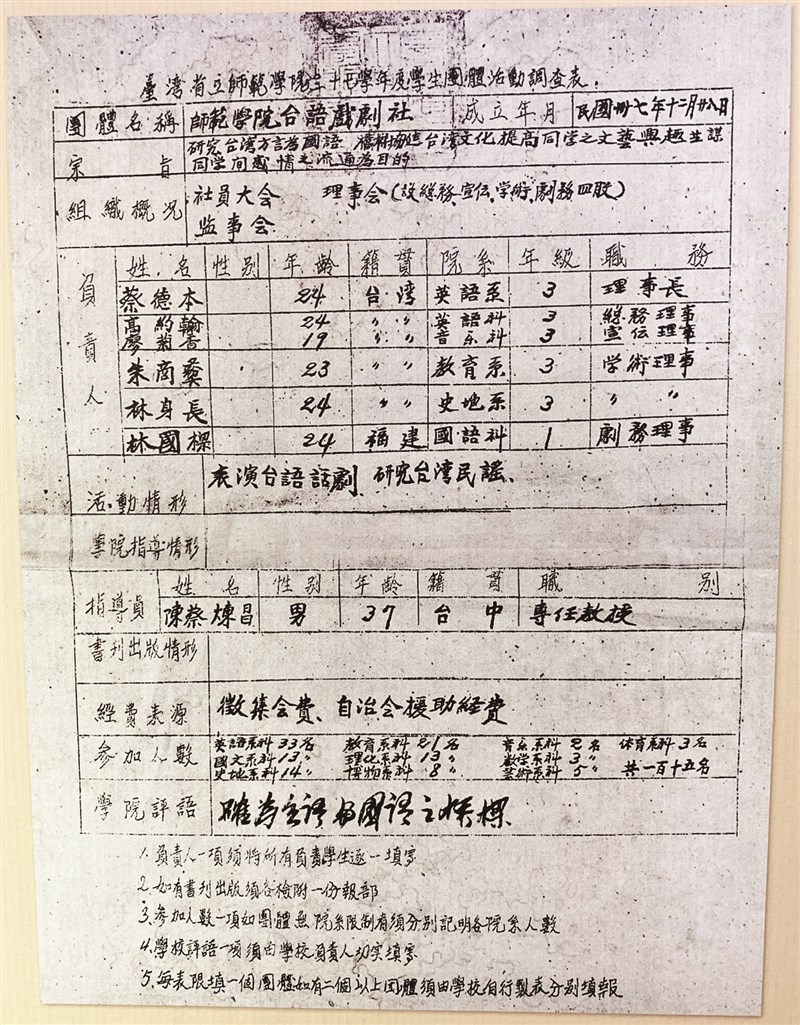 臺湾省立師範學院三十七學年度學生團體活動調查表.
團體名稱 師範學院台語戲劇社 成立年月 民國卅七年十二月廿八日
宗旨 研究台湾方言為國語 橋樑協進台湾文化提高同学之文藝興趣並謀
同学间感情之流通為目的
組織概況 社員大会 理事会(設總務、宣伝、学術、劇務四股)
监事会
負責人 姓名 性别 年齡 籍貫 院系 年級 職務
蔡德本 24 台湾 英語系 3 理事長
高約翰 24 〃〃 英語科 3 總務理事
廖菊香 19 〃〃 音乐科 3 宣伝理事
朱商彝 23 〃〃 教育系 3 学術理事
林身長 24 〃〃 史地系 3 〃〃
林國樑 24 福建 國語科 1 劇務理事
活動情形 表演台語話劇 研究台湾民謡、
學院指導情形
指導員 姓名 性别 年齡 籍貫 職别
陳蔡煉昌 男 37 台中 專任教授
書刋出版情形
經費來源 徵集会費、自治会援助経費
參加人數 英語系科33名 教育系科21名 音乐系科2名 体育系科3名
國文系科13〃 理化系科13〃 数学系科3〃
史地系科14〃 博物系科8〃 芸術系科5〃 共一百十五名
學院評語 確為台語與國語之橋樑
1. 負責人一項須將所有負責學生逐一填寫
2. 如有書刋出版須各檢附一份報部
3. 參加人數一項如團體無院系限制有須分别記明各院系人數
4. 學校評語一項須由學校負責人切実填寫
5. 每表限填一個團體如有二個以上团體須由學校自行製表分别填報